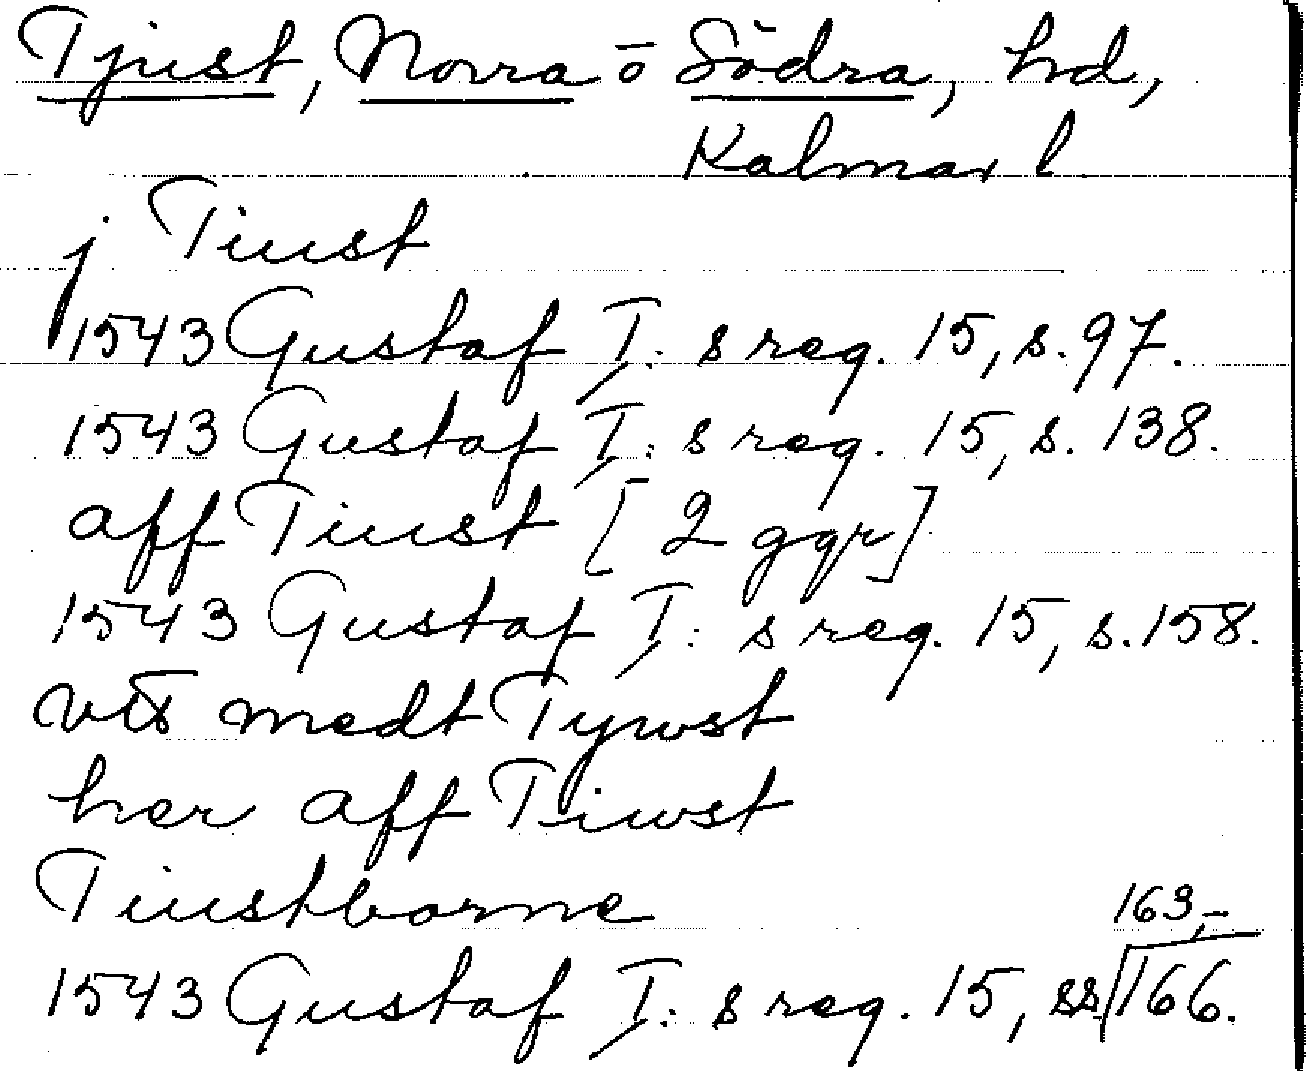 Tjust, Norra o Södra, hd,
Kalmar l.
j Tiust
1543 Gustaf I: s reg. 15, s. 97.
1543 Gustaf I: s reg. 15, s. 138.
aff Tiust [2 ggr]
1543 Gustaf I: s reg. 15, s. 158.
medt Tywst
her aff Tiwst
Tiustborne
163,-
1543 Gustaf I: s reg. 15, ss 166.